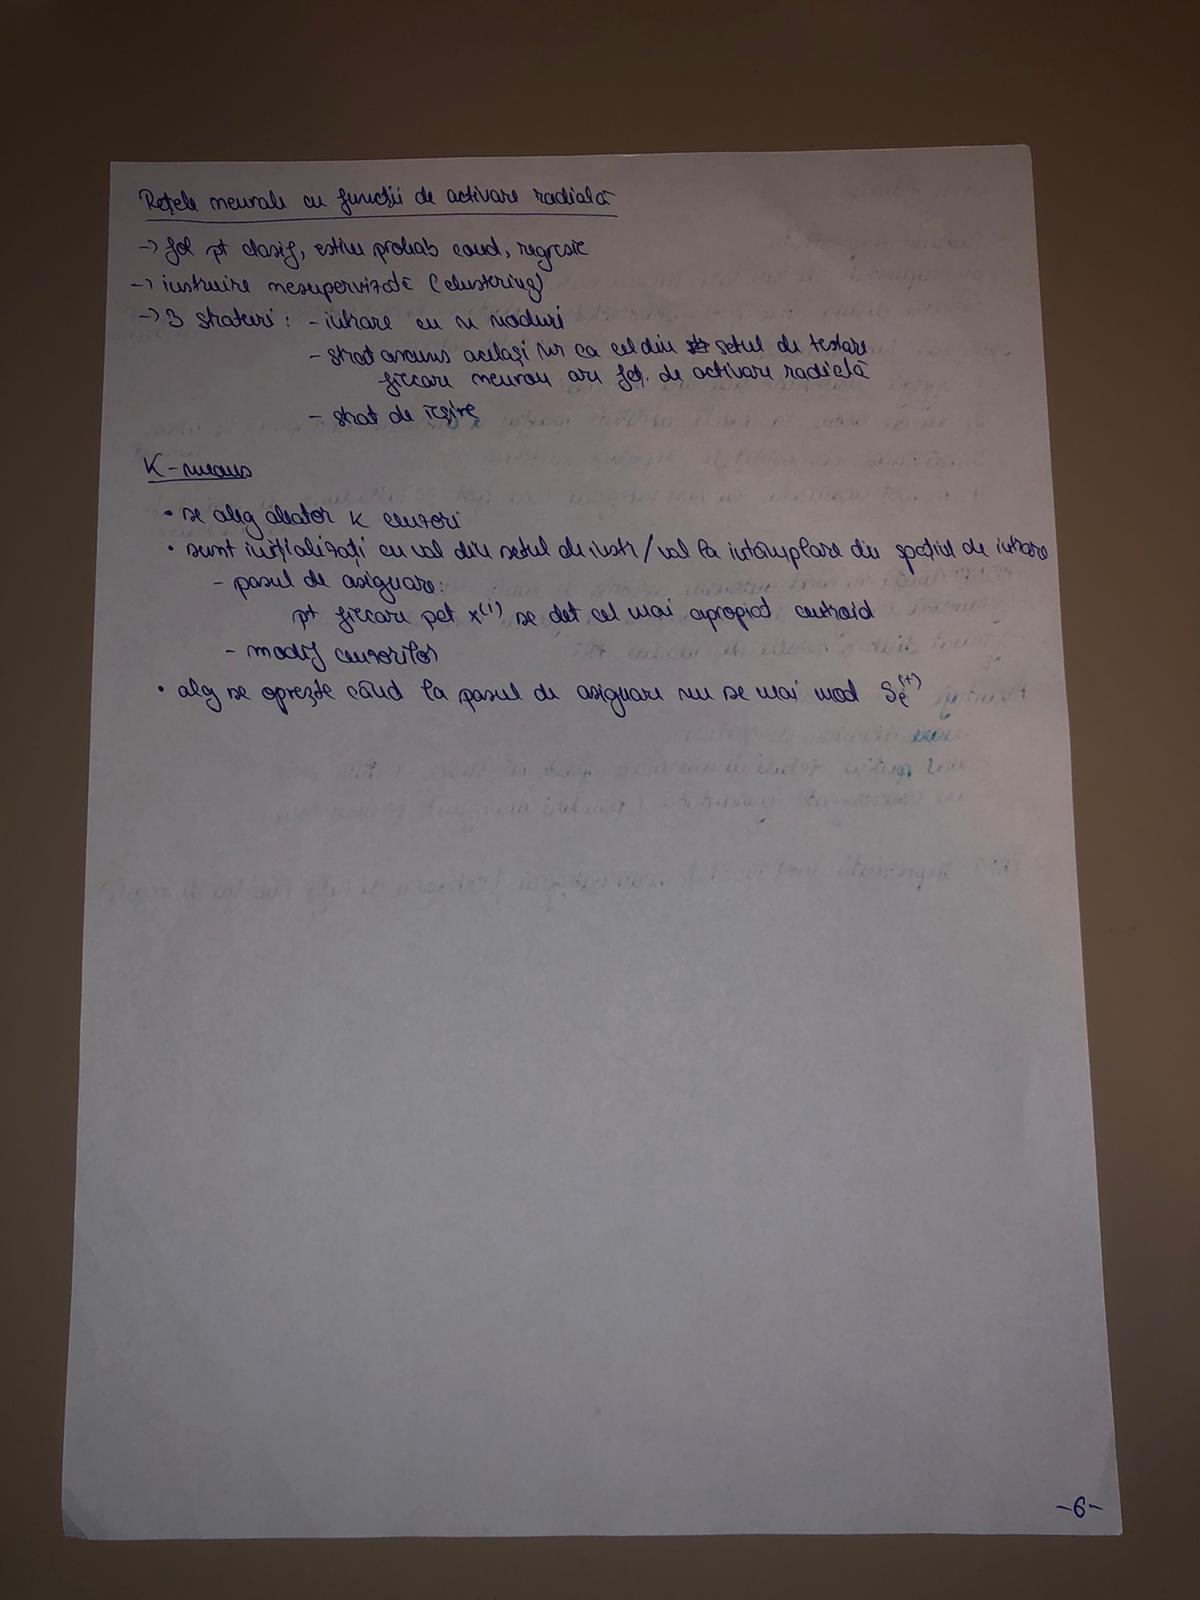 Rețele neurale cu funcții de activare radială
-> fol pt clasif, estim probab cond, regresie
-> instruire nesupervizată (clustering)
-> 3 straturi: - intrare cu n noduri
- strat ascuns același nr ca cel din setul de testare
fiecare neuron are fct. de activare radială
- strat de ieșire
K-means
• se aleg aleator K centroizi
• sunt inițializați cu val din setul de instr/val la întâmplare din spațiul de intrare
- pasul de asignare:
pt fiecare pct x(i) se det cel mai apropiat centroid
- modif centroizilor
• alg se oprește când la pasul de asignare nu se mai mod
-6-